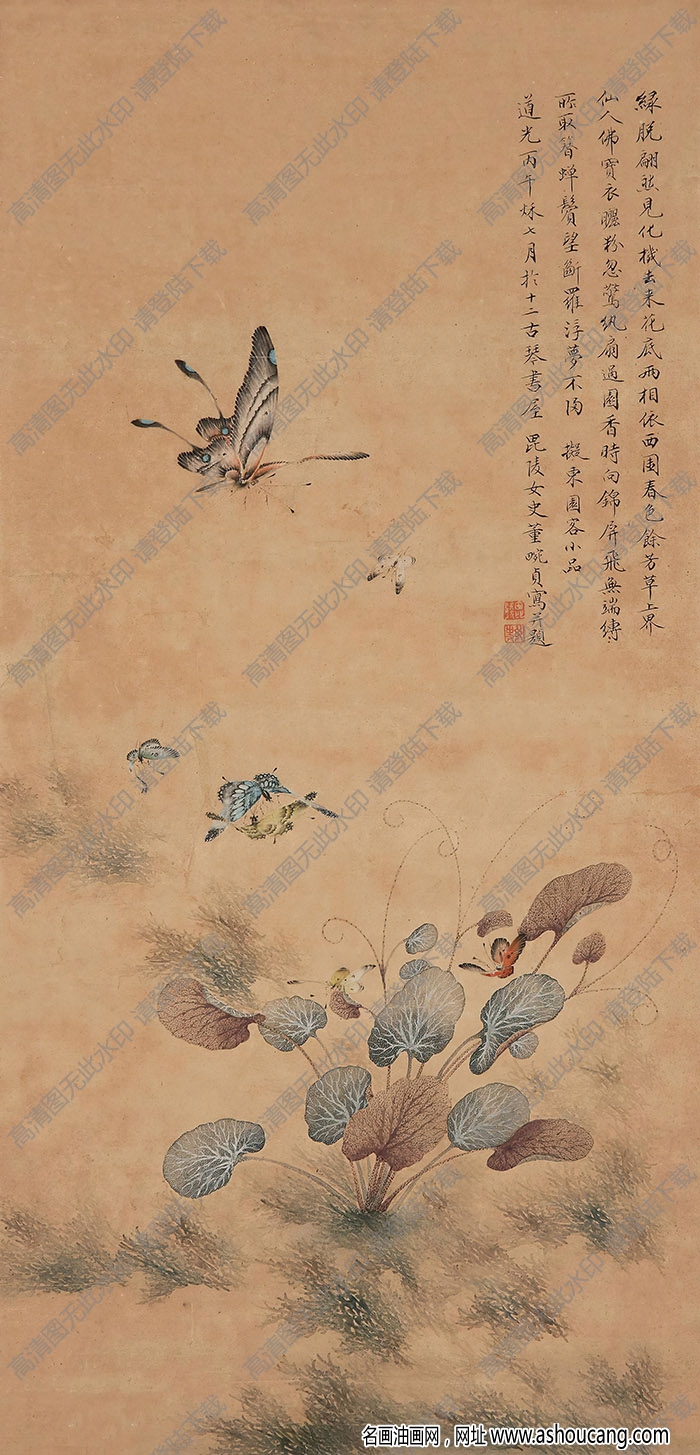 緑脫翩然見化機去來花底両相依西園春色餘芳草上界
仙人佛寶衣曬粉忽驚紈扇過團香時向錦屏飛無端縛
取簪蟬鬢望斷羅浮夢不歸 擬東園客小品
道光丙午秌七月於十二古琴書屋 毘陵女史董婉貞寫并題
高清图无此水印 请登陆下载
名画油画网，网址 www.ashoucang.com